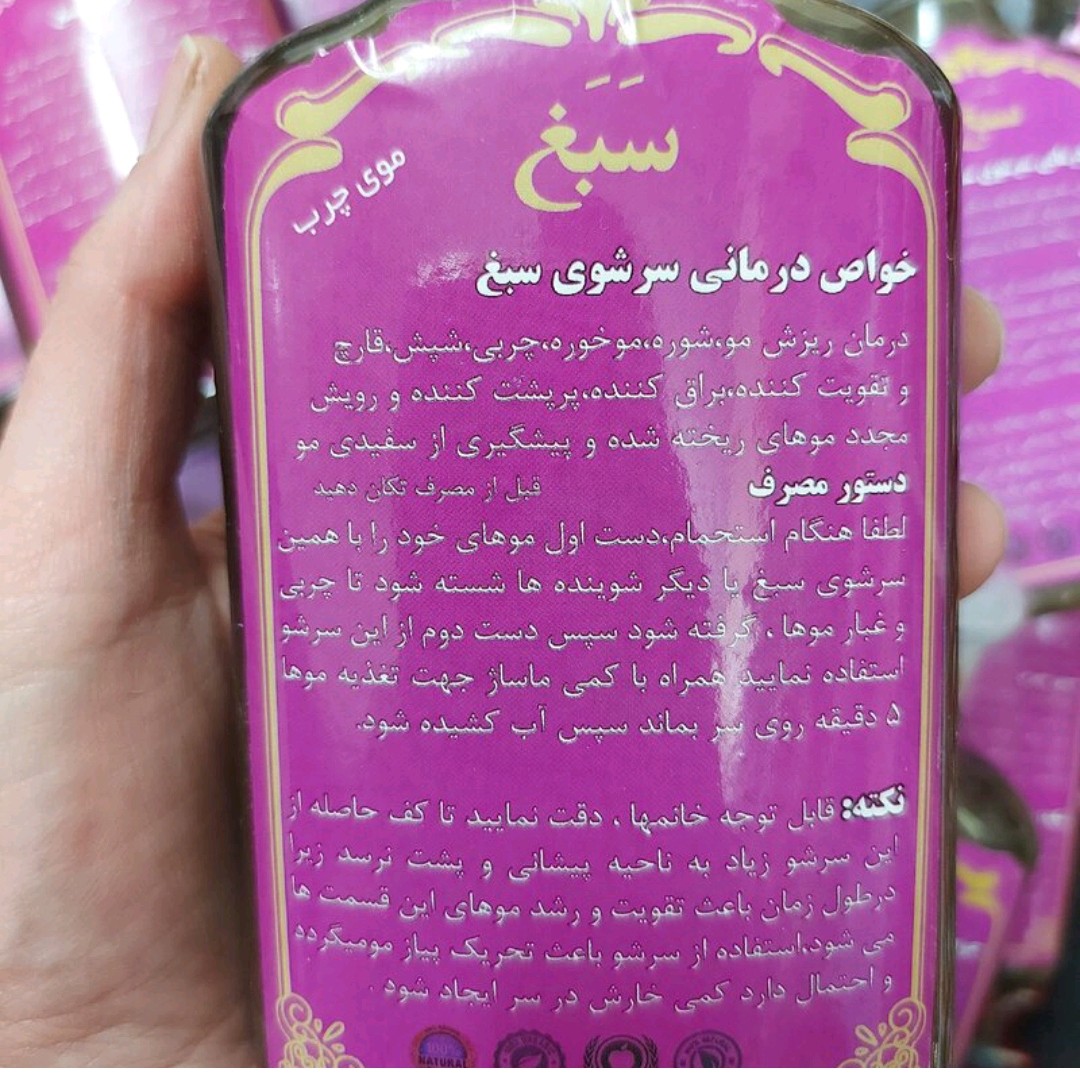 سَبَغ
موی چرب
خواص درمانی سرشوی سبغ
درمان ریزش مو،شوره،موخوره،چربی،شپش،قارچ
و تقویت کننده،براق کننده،پرپشت کننده و رویش
مجدد موهای ریخته شده و پیشگیری از سفیدی مو
دستور مصرف قبل از مصرف تکان دهید
لطفا هنگام استحمام،دست اول موهای خود را با همین
سرشوی سبغ یا دیگر شوینده ها شسته شود تا چربی
و غبار موها ، گرفته شود سپس دست دوم از این سرشو
استفاده نمایید همراه با کمی ماساژ جهت تغذیه موها
۵ دقیقه روی سر بماند سپس آب کشیده شود.
نکته: قابل توجه خانمها ، دقت نمایید تا کف حاصله از
این سرشو زیاد به ناحیه پیشانی و پشت نرسد زیرا
درطول زمان باعث تقویت و رشد موهای این قسمت ها
می شود،استفاده از سرشو باعث تحریک پیاز مومیگردد
و احتمال دارد کمی خارش در سر ایجاد شود .
100%
NATURAL